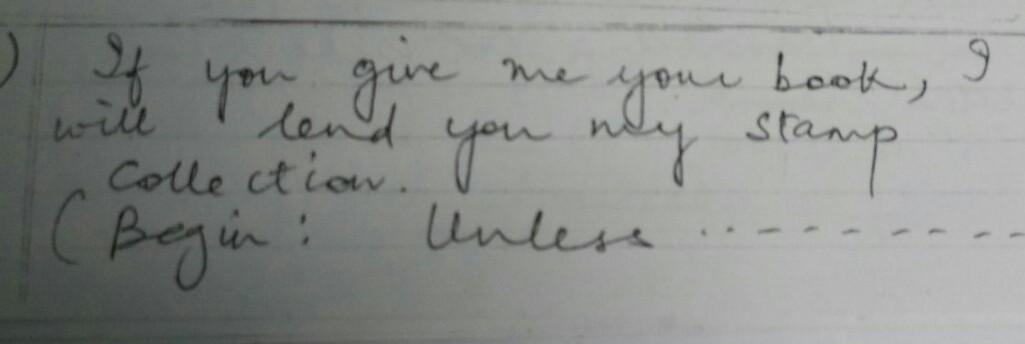 ) If you give me your book, I
will lend you my stamp
collection.
(Begin: Unless ..-------